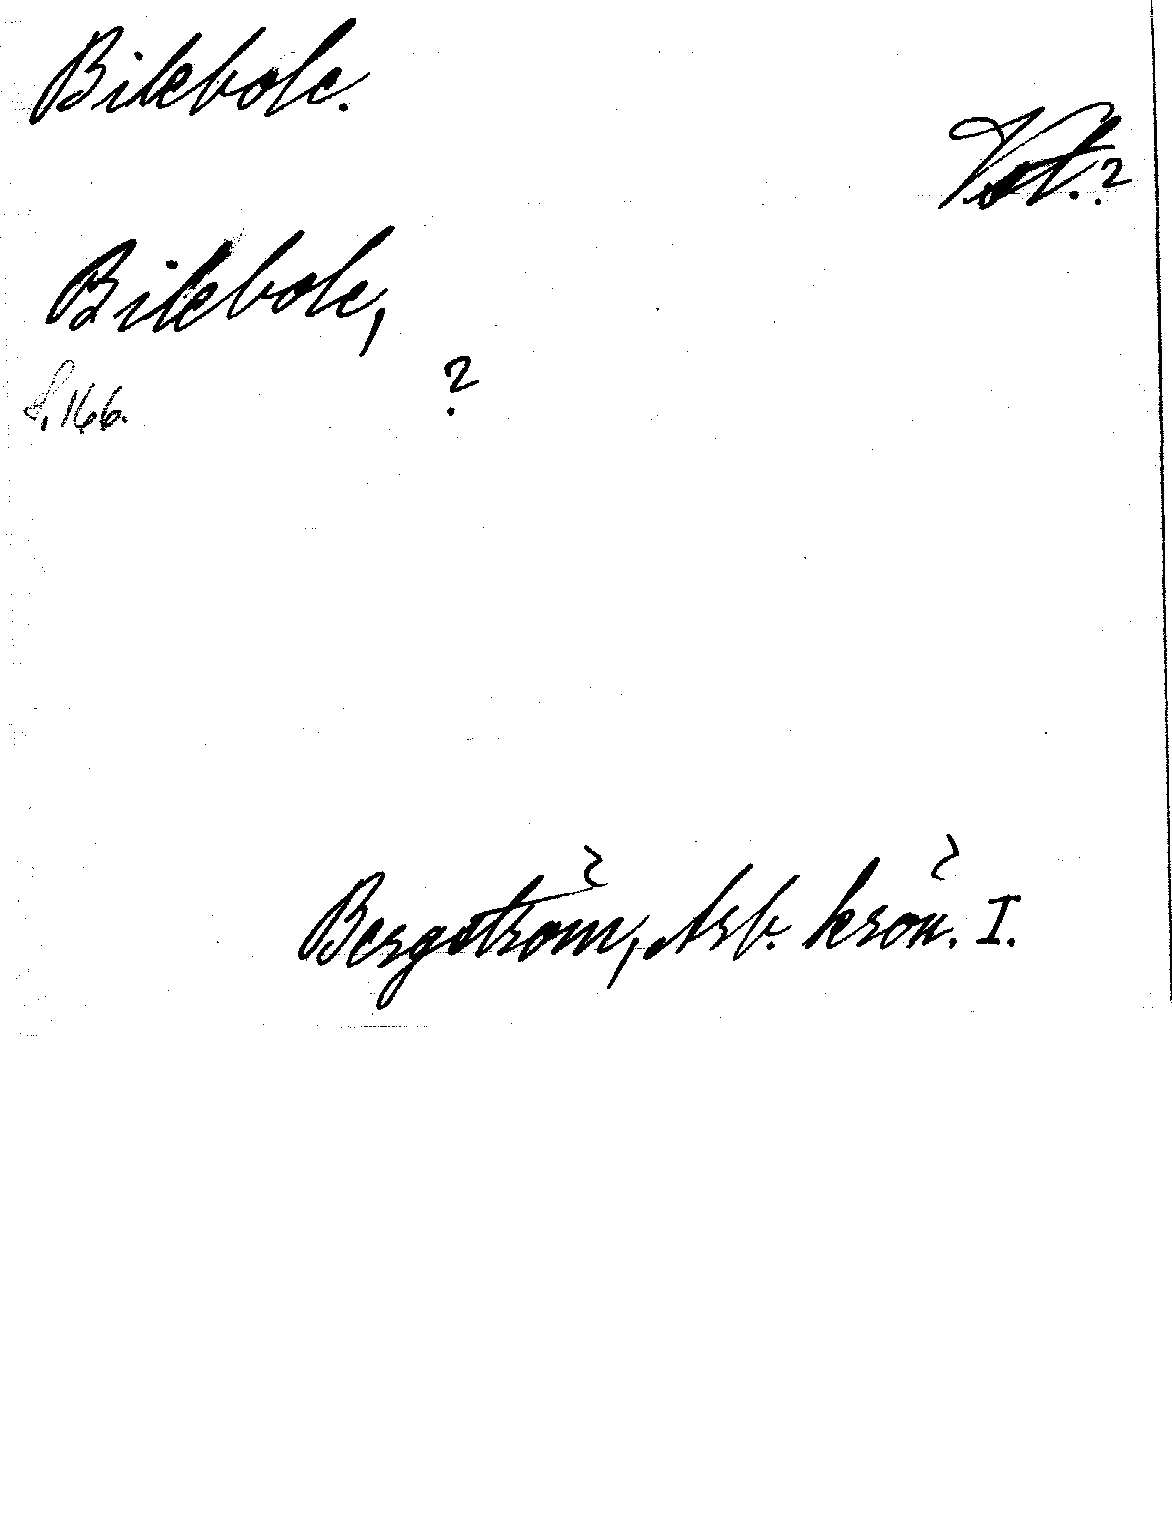 Bilebole.
Vst.?
Bilebole,
s. 166.
?
Bergström, Arb. krön. I.